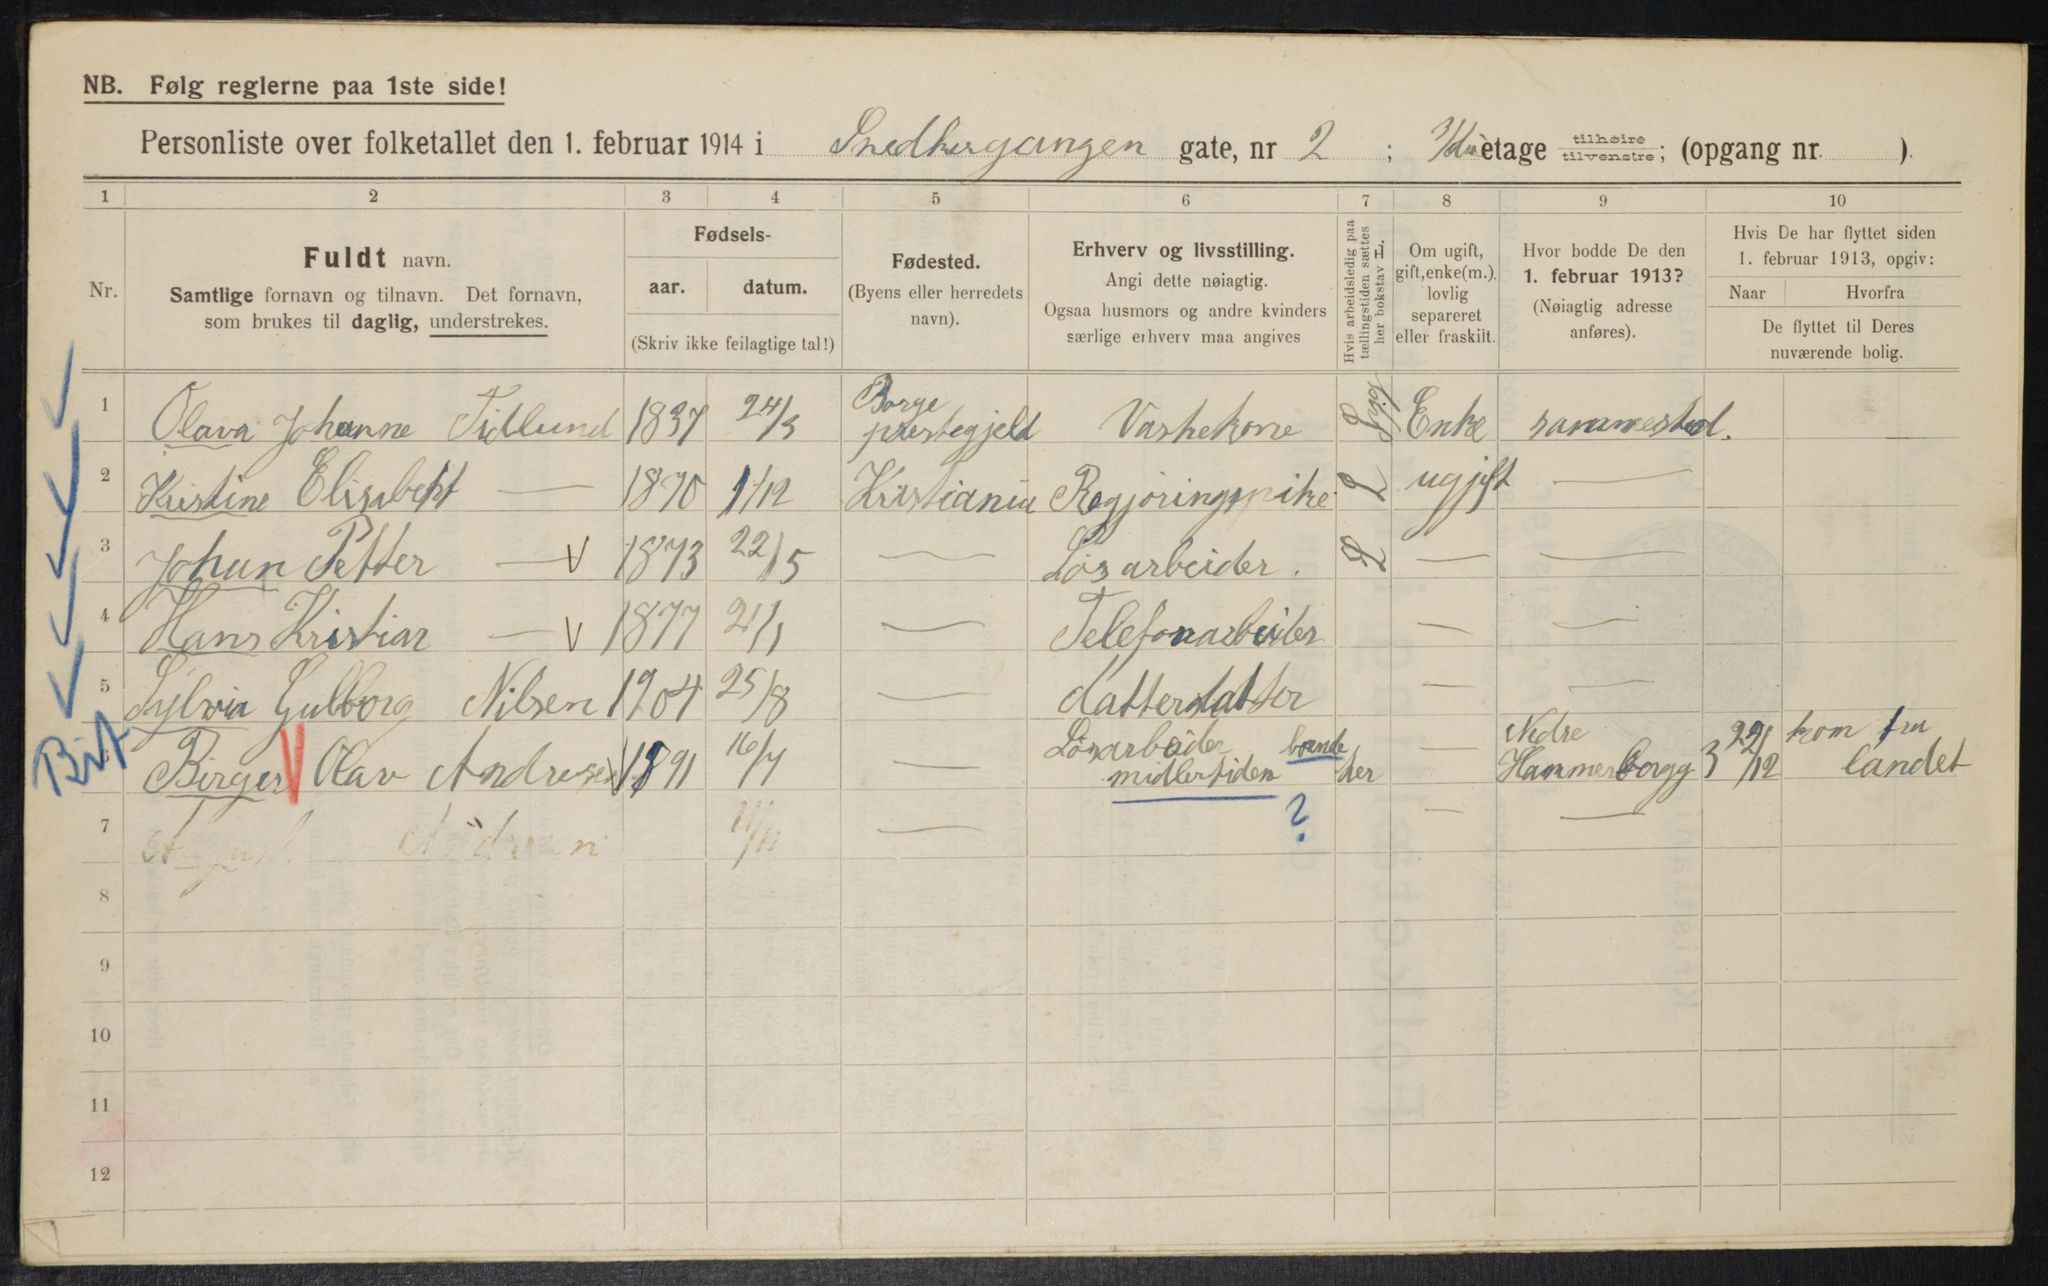 NB. Følg reglerne paa 1ste side!
Personliste over folketallet den 1. februar 1914 i Snedkergangen gate, nr 2 ; etage tilhøire/tilvenstre; (opgang nr. ).
1 2 3 4 5 6 7 8 9 10
Nr.
Fuldt navn.
Samtlige fornavn og tilnavn. Det fornavn,
som brukes til daglig, understrekes.
Fødsels-
aar. datum.
(Skriv ikke feilagtige tal!)
Fødested.
(Byens eller herredets
navn).
Erhverv og livsstilling.
Angi dette nøiagtig.
Ogsaa husmors og andre kvinders
særlige erhverv maa angives
Hvis arbeidsledig paa
tællingstiden sættes
her bokstav L.
Om ugift,
gift, enke(m.),
lovlig
separeret
eller fraskilt.
Hvor bodde De den
1. februar 1913?
(Nøiagtig adresse
anføres).
Hvis De har flyttet siden
1. februar 1913, opgiv:
Naar Hvorfra
De flyttet til Deres
nuværende bolig.
1 Olava Johanne Tidlund 1837 24/3 Borge prestegjeld Vaskekone L Enke sammested.
2 Kristine Elisabeht — 1870 1/12 Kristiania Regjøringspike L ugift —
3 Johan Petter — V 1873 22/5 — Løsarbeider. L — —
4 Hans Kristian — V 1877 21/1 — Telefonarbeider — —
5 Sylvia Gulborg Nilsen 1904 25/8 — datterdatter — —
Birger V Olav Andresen 1891 16/7 Løsarbeider boende midlertiden her — Nedre Hammerborgg 3 22/12 kom fra landet
7 11/11 — ? — —
8
9
10
11
12